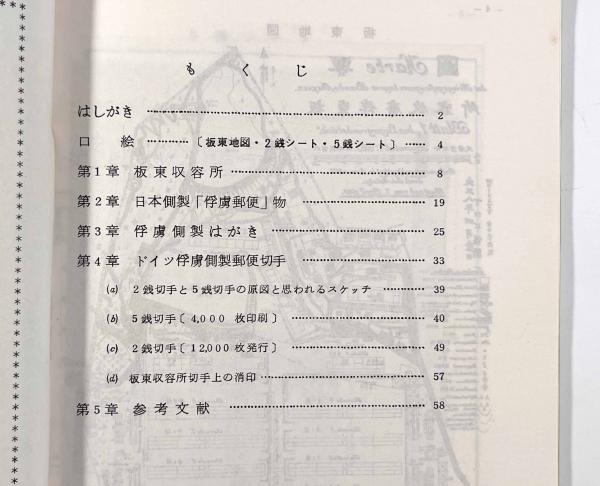 もくじ
はしがき …………… 2
口絵 …………〔板東地図・2銭シート・5銭シート〕…… 4
第1章 板東収容所 …………… 8
第2章 日本側製「俘虜郵便」物 …………… 19
第3章 俘虜側製はがき …………… 25
第4章 ドイツ俘虜側製郵便切手 …………… 33
(a) 2銭切手と5銭切手の原図と思われるスケッチ …………… 39
(b) 5銭切手〔4,000 枚印刷〕 …………… 40
(c) 2銭切手〔12,000枚発行〕 …………… 49
(d) 板東収容所切手上の消印 …………… 57
第5章 参考文献 …………… 58